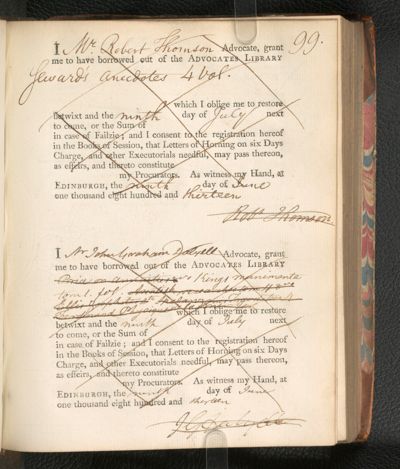 I Mr. Robert Thomson Advocate, grant 99.
me to have borrowed out of the ADVOCATES LIBRARY
Sewards anecdotes 4 Vol.
which I oblige me to restore
betwixt and the ninth day of July next
to come, or the Sum of
in case of Failzie; and I consent to the registration hereof
in the Books of Session, that Letters of Horning on six Days
Charge, and other Executorials needful, may pass thereon,
as effeirs, and thereto constitute
my Procurators. As witness my Hand, at
EDINBURGH, the ninth day of June
one thousand eight hundred and thirteen
Robt. Thomson
I Mr John Graham Dalyell Advocate, grant
me to have borrowed out of the ADVOCATES LIBRARY
Kings munimenta
which I oblige me to restore
betwixt and the ninth day of July next
to come, or the Sum of
in case of Failzie; and I consent to the registration hereof
in the Books of Session, that Letters of Horning on six Days
Charge, and other Executorials needful, may pass thereon,
as effeirs, and thereto constitute
my Procurators. As witness my Hand, at
EDINBURGH, the ninth day of June
one thousand eight hundred and thirteen
J G Dalyell